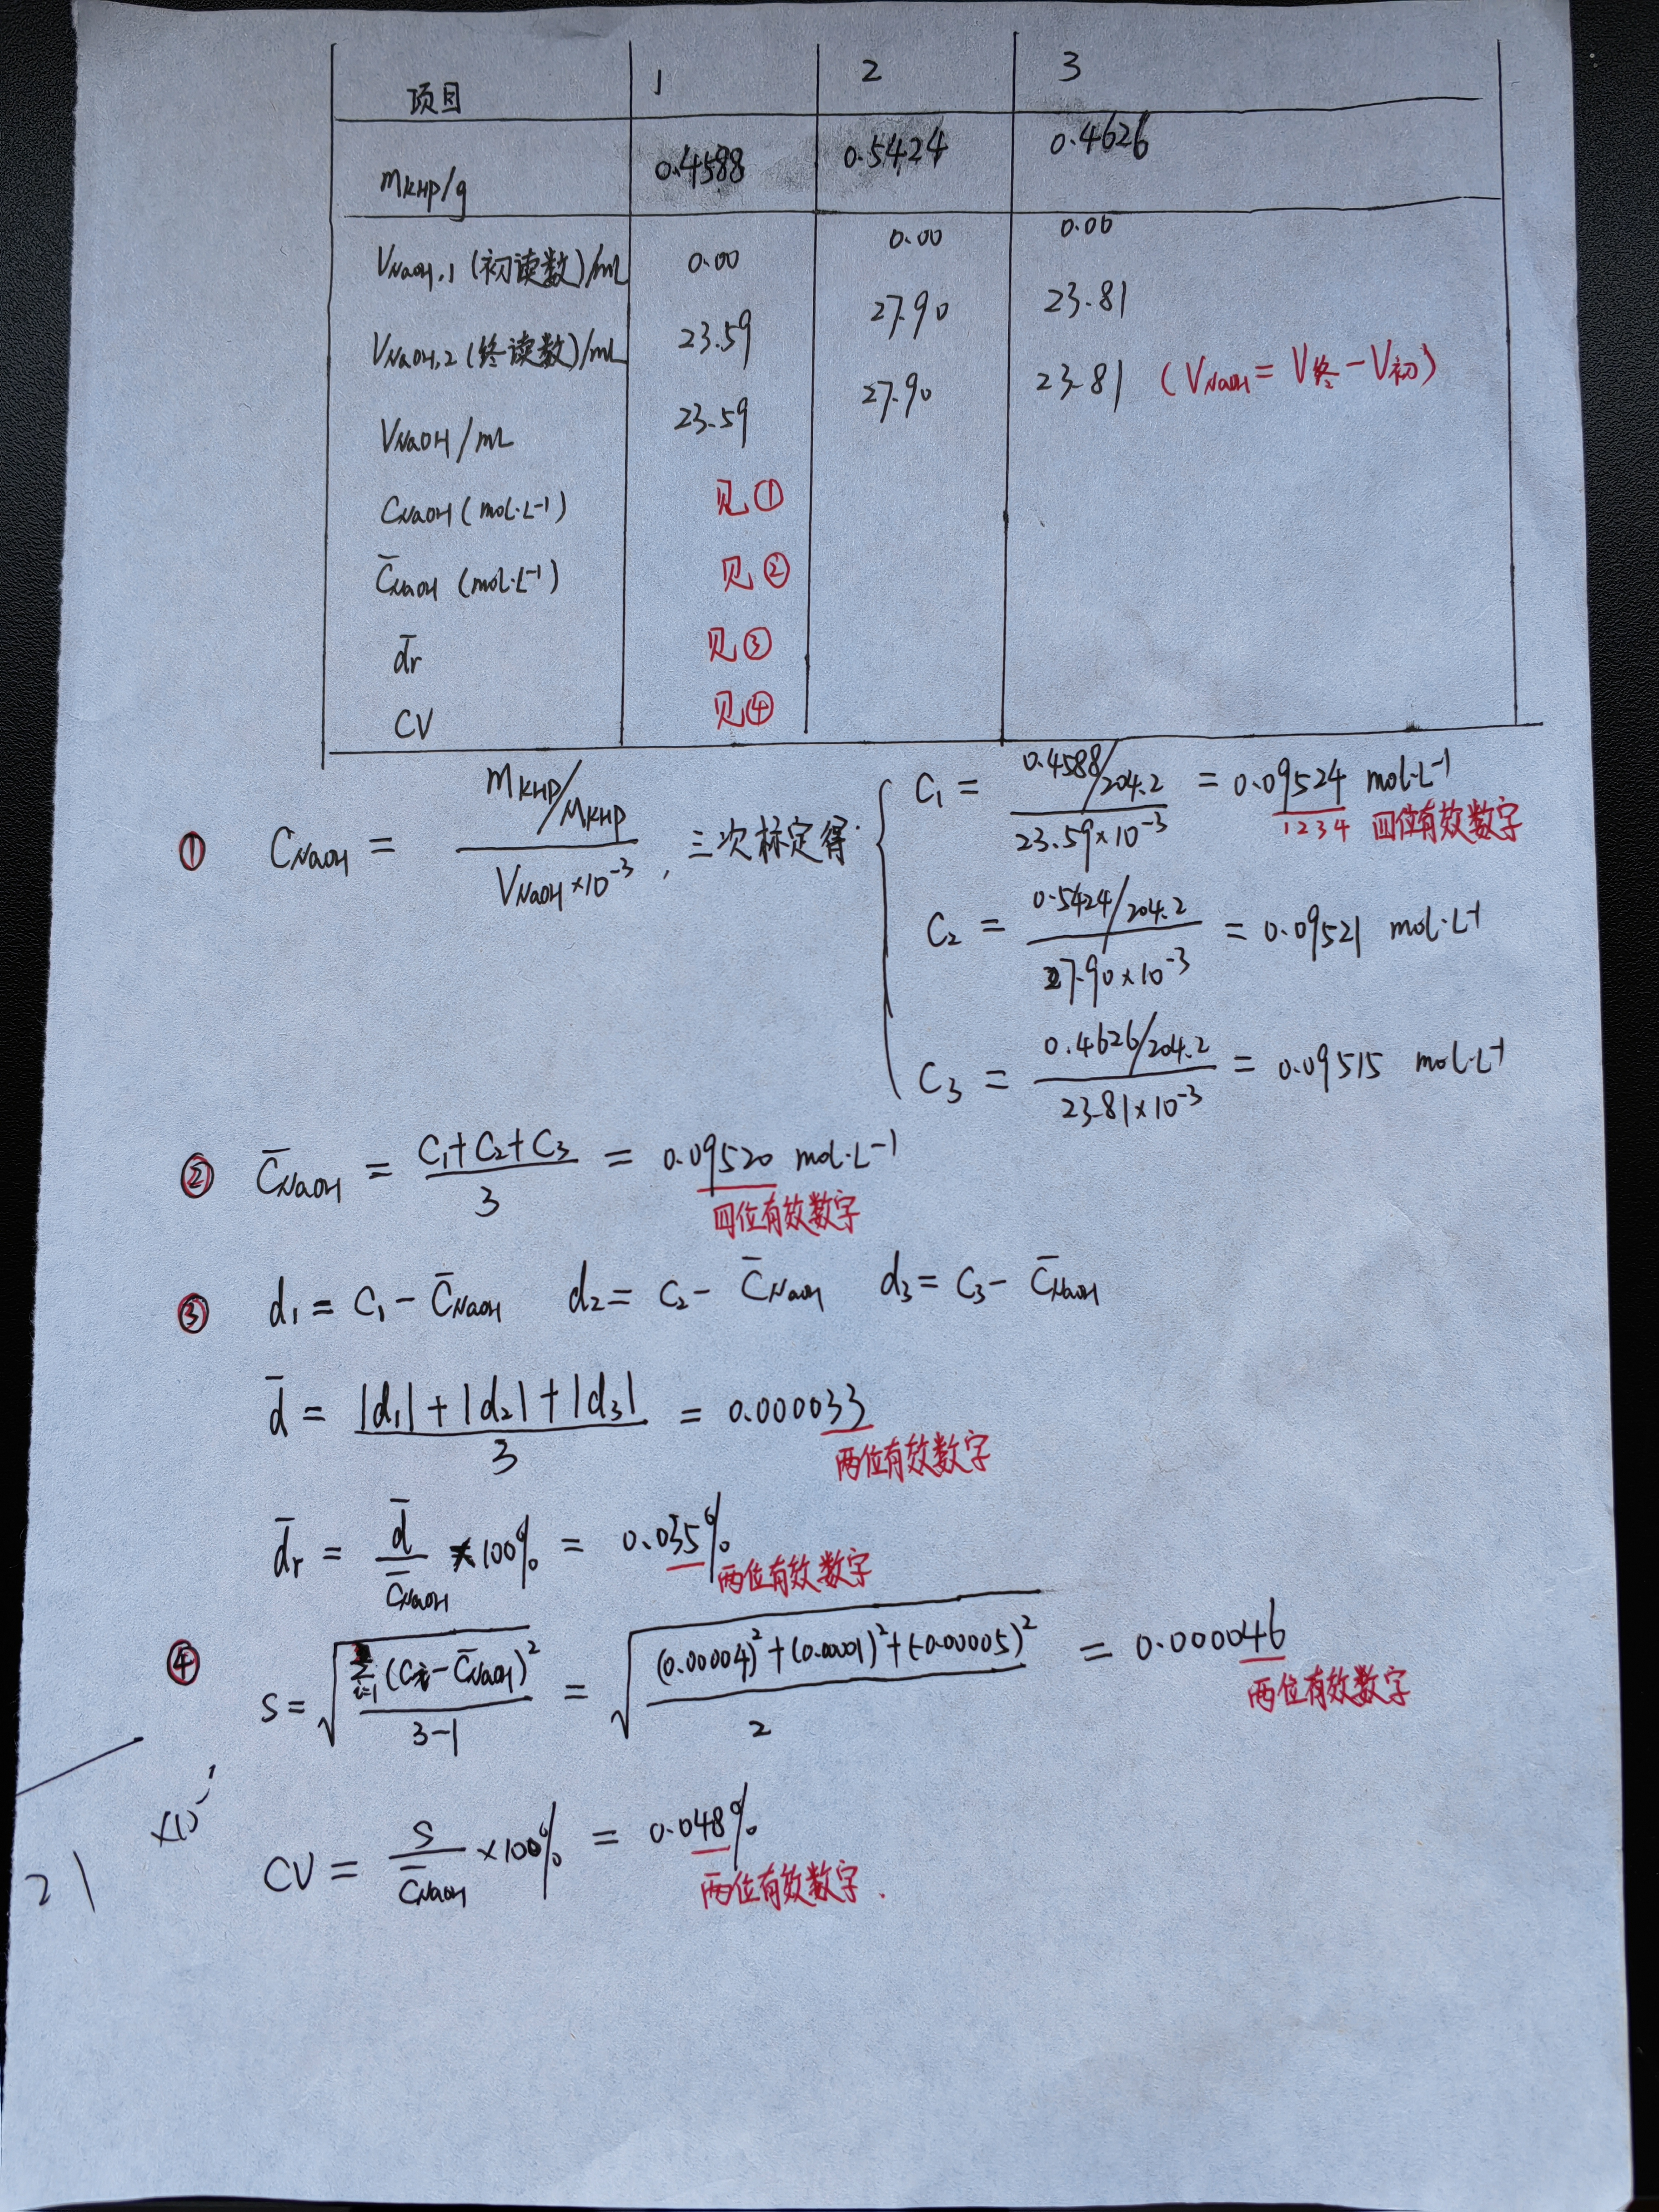 项目 1 2 3
mKHP/g 0.4588 0.5424 0.4626
VNaOH,1 (初读数)/mL 0.00 0.00 0.00
VNaOH,2 (终读数)/mL 23.59 27.90 23.81
VNaOH/mL 23.59 27.90 23.81 (VNaOH = V终 - V初)
CNaOH (mol·L-1) 见①
C̄NaOH (mol·L-1) 见②
d̄r 见③
CV 见④
① CNaOH = mKHP/MKHP / VNaOH×10-3 , 三次标定得:
C1 = 0.4588/204.2 / 23.59×10-3 = 0.09524 mol·L-1
1234 四位有效数字
C2 = 0.5424/204.2 / 27.90×10-3 = 0.09521 mol·L-1
C3 = 0.4626/204.2 / 23.81×10-3 = 0.09515 mol·L-1
② C̄NaOH = C1+C2+C3 / 3 = 0.09520 mol·L-1
四位有效数字
③ d1 = C1 - C̄NaOH d2 = C2 - C̄NaOH d3 = C3 - C̄NaOH
d̄ = |d1| + |d2| + |d3| / 3 = 0.000033
两位有效数字
d̄r = d̄ / C̄NaOH ×100% = 0.035%
两位有效数字
④ S = √ Σi=1 (Ci - C̄NaOH)2 / 3-1 = √ (0.00004)2 + (0.0001)2 + (-0.00005)2 / 2 = 0.000046
两位有效数字
×10-1
21
CV = S / C̄NaOH ×100% = 0.048%
两位有效数字.